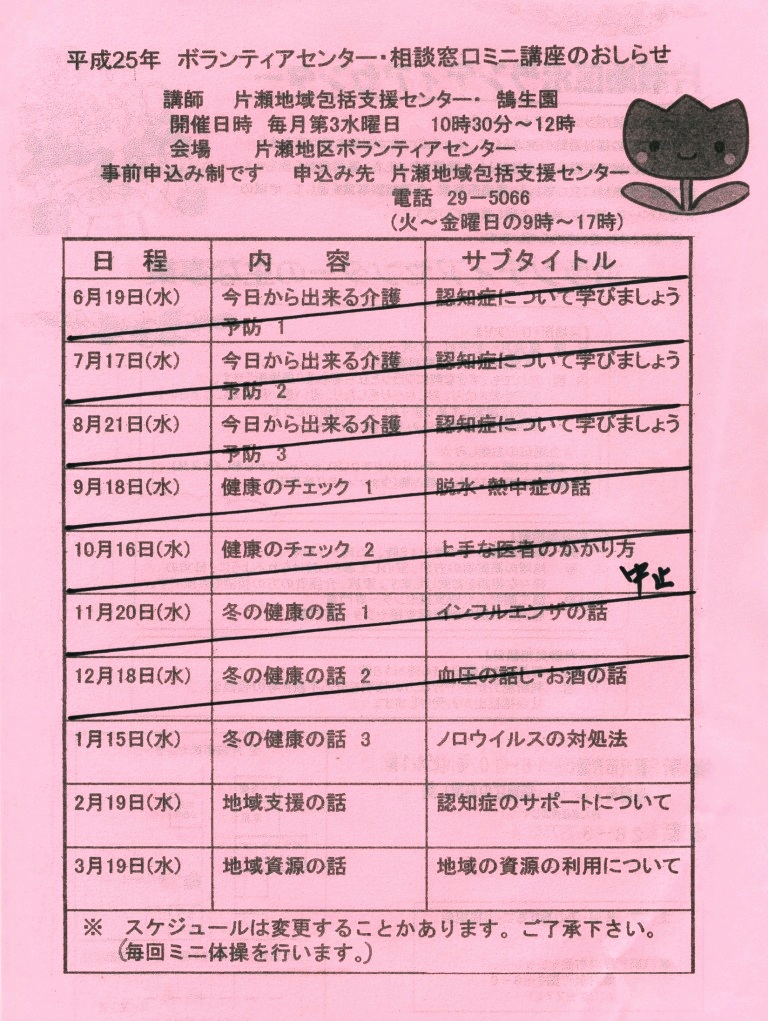 平成25年 ボランティアセンター・相談窓口ミニ講座のおしらせ
講師 片瀬地域包括支援センター・ 鵠生園
開催日時 毎月第3水曜日 10時30分～12時
会場 片瀬地区ボランティアセンター
事前申込み制です 申込み先 片瀬地域包括支援センター
電話 29－5066
(火～金曜日の9時～17時)
日 程 内 容 サブタイトル
6月19日(水) 今日から出来る介護 認知症について学びましょう
予防 1
7月17日(水) 今日から出来る介護 認知症について学びましょう
予防 2
8月21日(水) 今日から出来る介護 認知症について学びましょう
予防 3
9月18日(水) 健康のチェック 1 脱水・熱中症の話
10月16日(水) 健康のチェック 2 上手な医者のかかり方
中止
11月20日(水) 冬の健康の話 1 インフルエンザの話
12月18日(水) 冬の健康の話 2 血圧の話し・お酒の話
1月15日(水) 冬の健康の話 3 ノロウイルスの対処法
2月19日(水) 地域支援の話 認知症のサポートについて
3月19日(水) 地域資源の話 地域の資源の利用について
※ スケジュールは変更することかあります。ご了承下さい。
(毎回ミニ体操を行います。)